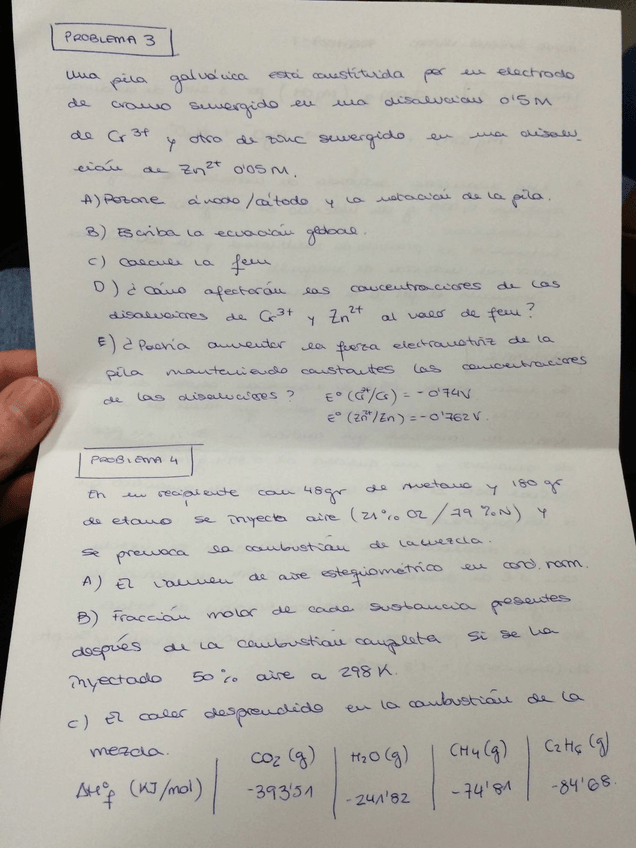 PROBLEMA 3
Una pila galvánica está constituida por un electrodo
de cromo sumergido en una disolución 0'5 M
de Cr3+ y otro de zinc sumergido en una disolu-
ción de Zn2+ 0'05 M.
A) Razone ánodo/cátodo y la notación de la pila.
B) Escriba la ecuación global.
C) Calcule la fem
D) ¿Cómo afectarán las concentraciones de las
disoluciones de Cr3+ y Zn2+ al valor de fem?
E) ¿Podría aumentar la fuerza electromotriz de la
pila manteniendo constantes las concentraciones
de las disoluciones? Eº (Cr3+/Cr) = -0'74V
Eº (Zn2+/Zn) = -0'762V.
PROBLEMA 4
En un recipiente con 48gr de metano y 180 gr
de etano se inyecta aire (21% O2 / 79 % N) y
se provoca la combustión de la mezcla.
A) El volumen de aire estequiométrico en cond. norm.
B) Fracción molar de cada sustancia presentes
después de la combustión completa si se ha
inyectado 50% aire a 298 K.
C) El calor desprendido en la combustión de la
mezcla.
CO2 (g) | H2O (g) | CH4 (g) | C2H6 (g)
ΔHºf (KJ/mol) | -393'51 | -241'82 | -74'81 | -84'68.